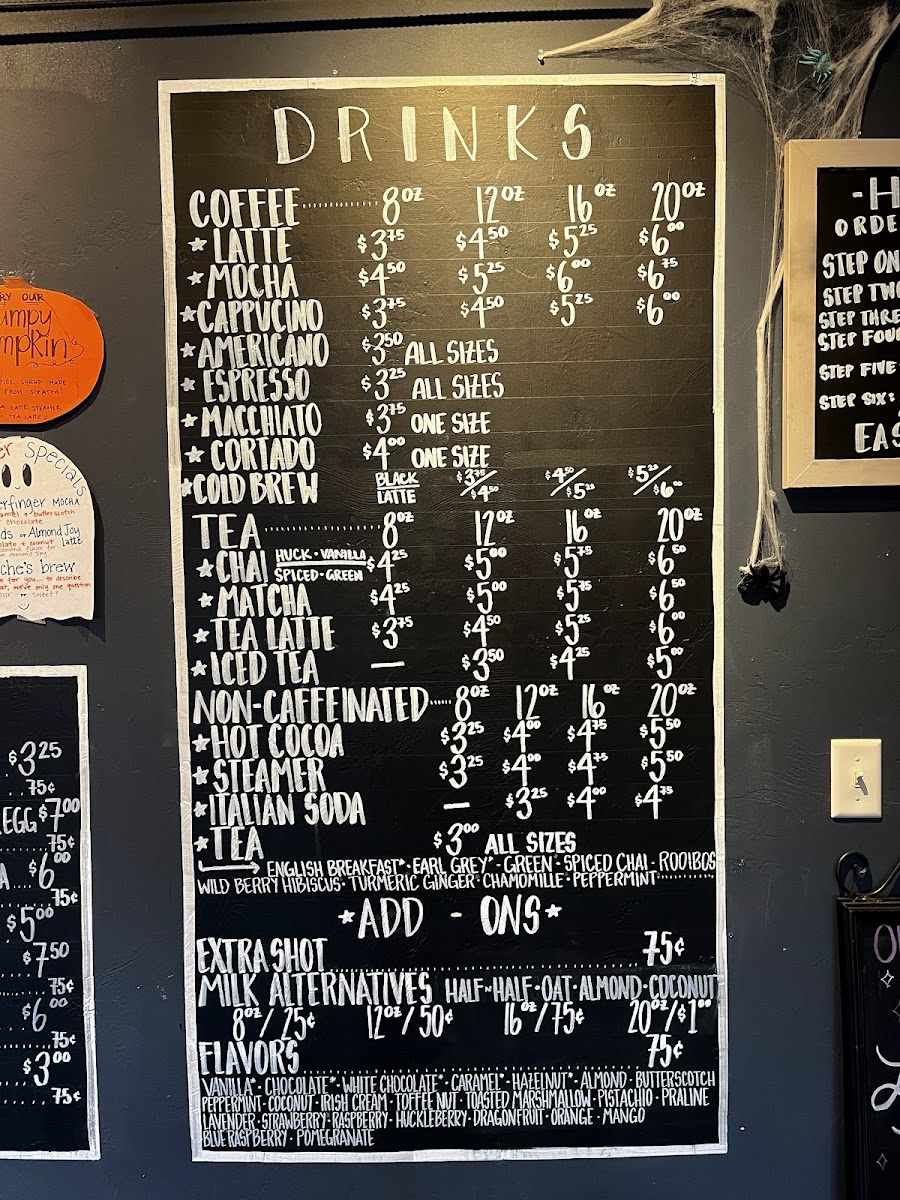 DRINKS
COFFEE 8OZ 12OZ 16OZ 20OZ
★ LATTE $3.75 $4.50 $5.25 $6.00
★ MOCHA $4.50 $5.25 $6.00 $6.75
★ CAPPUCINO $3.75 $4.50 $5.25 $6.00
★ AMERICANO $3.50 ALL SIZES
★ ESPRESSO $3.25 ALL SIZES
★ MACCHIATO $3.75 ONE SIZE
★ CORTADO $4.00 ONE SIZE
★ COLD BREW BLACK/LATTE $3.75/$4.50 $4.50/$5.25 $5.25/$6.00
TEA 8OZ 12OZ 16OZ 20OZ
★ CHAI HUCK · VANILLA SPICED · GREEN $4.25 $5.00 $5.75 $6.50
★ MATCHA $4.25 $5.00 $5.75 $6.50
★ TEA LATTE $3.75 $4.50 $5.25 $6.00
★ ICED TEA — $3.50 $4.25 $5.00
NON-CAFFEINATED 8OZ 12OZ 16OZ 20OZ
★ HOT COCOA $3.25 $4.00 $4.75 $5.50
★ STEAMER $3.25 $4.00 $4.75 $5.50
★ ITALIAN SODA — $3.25 $4.00 $4.75
★ TEA $3.00 ALL SIZES
ENGLISH BREAKFAST* · EARL GREY* · GREEN · SPICED CHAI · ROOIBOS
WILD BERRY HIBISCUS · TURMERIC GINGER · CHAMOMILE · PEPPERMINT
★ ADD - ONS ★
EXTRA SHOT 75¢
MILK ALTERNATIVES HALF~HALF · OAT · ALMOND · COCONUT
8OZ/25¢ 12OZ/50¢ 16OZ/75¢ 20OZ/$1.00
FLAVORS 75¢
VANILLA* · CHOCOLATE* · WHITE CHOCOLATE* · CARAMEL* · HAZELNUT* · ALMOND · BUTTERSCOTCH
PEPPERMINT · COCONUT · IRISH CREAM · TOFFEE NUT · TOASTED MARSHMALLOW · PISTACHIO · PRALINE
LAVENDER · STRAWBERRY · RASPBERRY · HUCKLEBERRY · DRAGONFRUIT · ORANGE · MANGO
BLUE RASPBERRY · POMEGRANATE
RY OUR
umpy
mpkin
SYRUP MADE
FROM SCRATCH!
LATTE, STEAMER
TEA LATTE
er Specials
erfinger MOCHA
amel + butterscotch
chocolate
ds or Almond Joy
latte
olate + coconut
Almond Joy
che's brew
e for you... to describe
we've only one question
our or sweet?
$3.25
75¢
EGG $7.00
75¢
A $6.00
75¢
$5.00
$7.50
75¢
$6.00
75¢
$3.00
75¢
-H
ORDE
STEP ON
STEP TW
STEP THRE
STEP FOUR
STEP FIVE
STEP SIX:
EAS